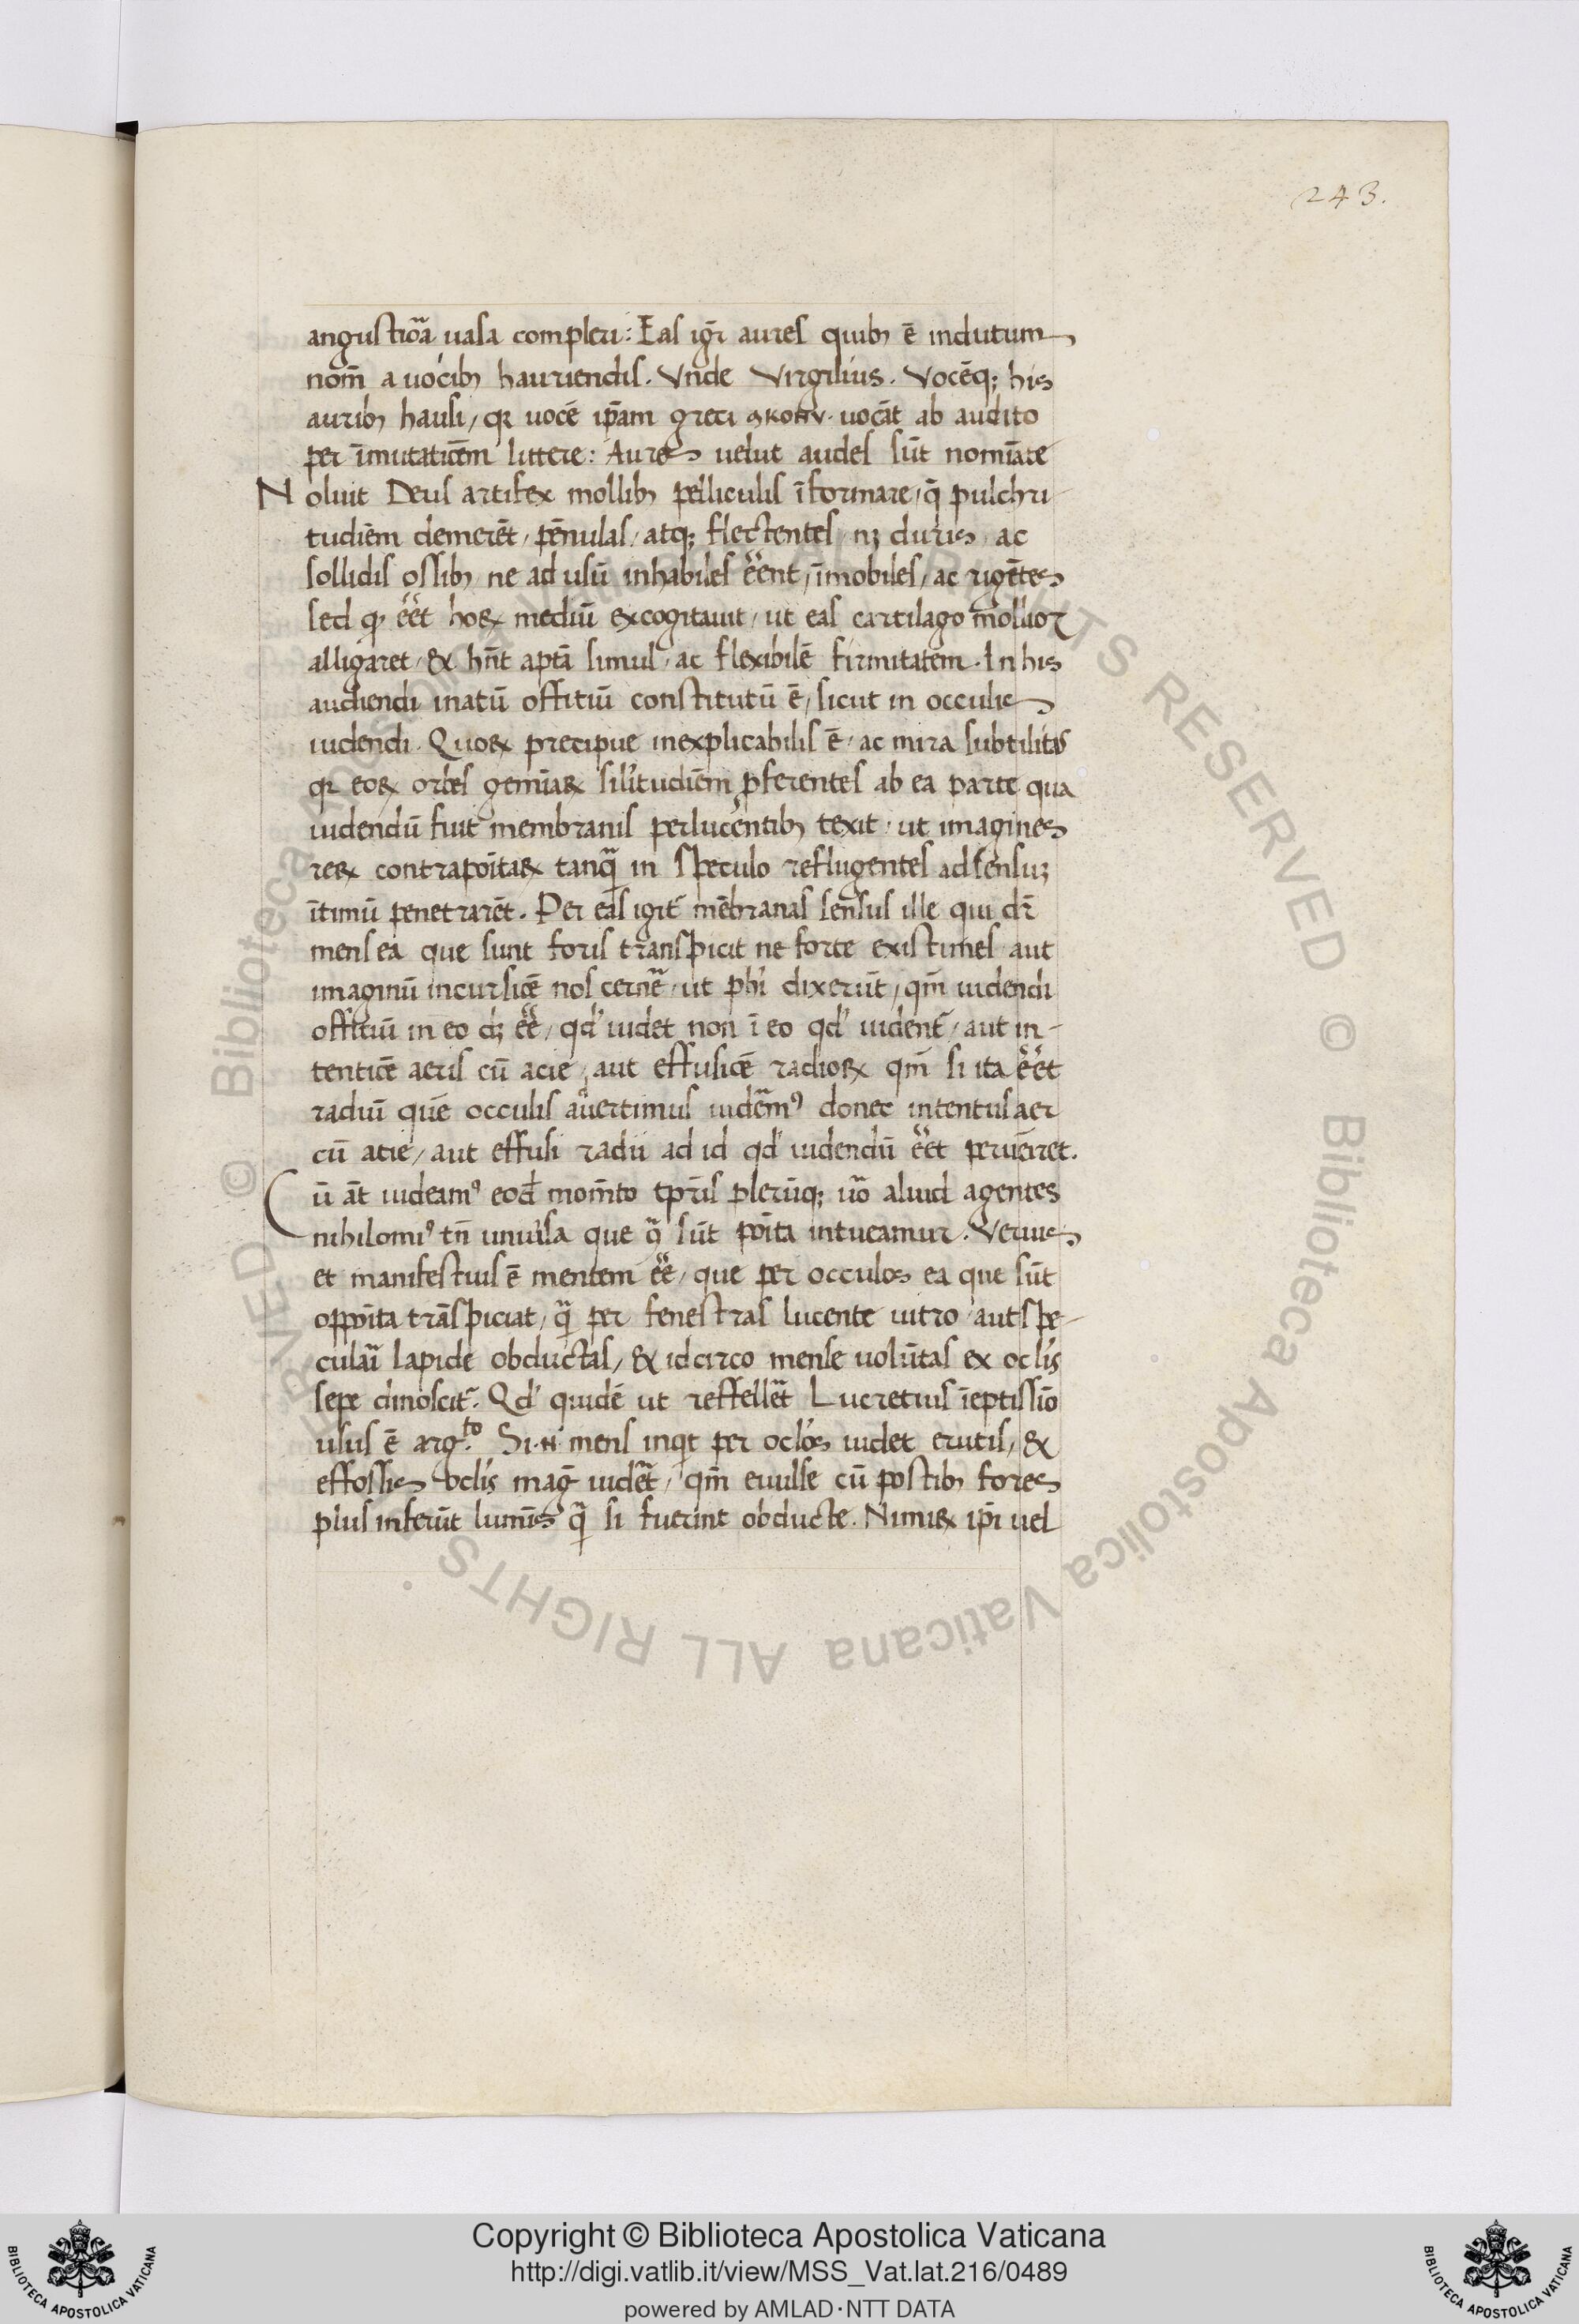 243.
angustiōa uasa compleri: Eas igr̄ aures quib; ē inditum
nom̄ a uocib; hauriendis. Vnde Virgilius. Vocēq; his
aurib; hausi, qr uocē ip̄am greci uocāt ab audito
per īmutaticēm littere: Aures uelut audes sūt nomīate
Noluit Deus artifex mollib; pelliculis īformare, q̄ pulchri-
tudiēm demerēt, pēnulas, atq; flectentes, nȝ duris, ac
sollidis ossib; ne ad usū inhabiles eēnt, īmobiles, ac rigētes
sed qȝ eēt hoꝝ mediū excogitauit, ut eas cartilago mollior
alligaret, & hn̄t aptā simul, ac flexibilē firmitatem. In his
audiendi inatū offitiū constitutū ē, sicut in occulis
uidendi. Quoꝝ precipue inexplicabilis ē, ac mira subtilitas
qr eoꝝ orbes gemīaꝝ silitudiēm p̄ferentes ab ea parte qua
uidendū fuit membranis perlucentib; texit, ut imagines
reꝝ contrapoitaꝝ tanq̄ in speculo reflugentes ad sensuȝ
ītimū penetrarēt. Per eas igit̄ mēbranas sensus ille qui dr̄
mens ea que sunt foris transpicit ne forte existimes aut
imaginū incursicē nos cernē, ut phi dixerūt, qm̄ uidendi
offitiū in eo dȝ eē, qd' uidet non ī eo qd' uident̄, aut in-
tenticē aeris cū acie, aut effusicē radioꝝ qm̄ si ita eēt
radiū quē occulis aūertimus uidēm⁹ donec intentus aer
cū acie, aut effusi radii ad id qd' uidendū eēt peruēiret.
Cū āt uideam⁹ eod̄ momēto tpr̄is plerūq; uō aliud agentes
nihilomi⁹ tn̄ uniūsa que q̄ sūt poīta intueamur. Verius
et manifestius ē mentem eē, que per occulos ea que sūt
oppoīta trāspiciat, q̄ per fenestras lucente uitro aut spe-
culāi lapide obductas, & idcirco mense uolūtas ex oclis
sepe dinoscit̄. Qd' quidē ut reffellēt Lucretius īeptissīo
usus ē arg.to Si .N. mens inqt per oclos uidet erutis, &
effossis oclis maḡ uidēt, qm̄ euulse cū postib; fores
plus inferūt lumīs q̄ si fuerint obducte. Nimiꝝ ip̄i uel
Copyright © Biblioteca Apostolica Vaticana
http://digi.vatlib.it/view/MSS_Vat.lat.216/0489
powered by AMLAD·NTT DATA